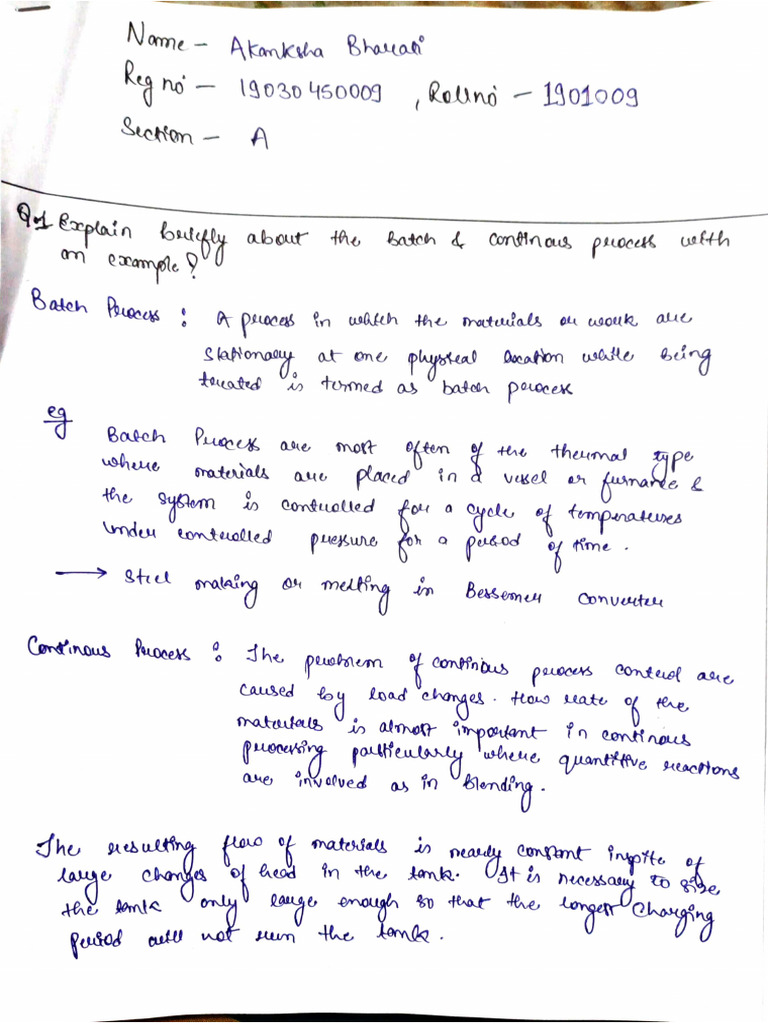 Name - Akanksha Bharati
Reg no - 19030450009 , Rollno - 1901009
Section - A
Q.1 Explain briefly about the batch & continous process with
an example?
Batch Process : A process in which the materials or work are
stationary at one physical location while being
treated is termed as batch process
eg
Batch Process are most often of the thermal type
where materials are placed in a vessel or furnance &
the system is controlled for a cycle of temperatures
under controlled pressure for a period of time.
→ Steel making or melting in Bessemer converter
Continous Process : The problem of continous process control are
caused by load changes. Flow rate of the
materials is almost important in continous
processing particularly where quantitive reactions
are involved as in Blending.
The resulting flow of materials is nearly constant inspite of
large changes of head in the tank. It is necessary to size
the tank only large enough so that the longest charging
period will not run the tank.